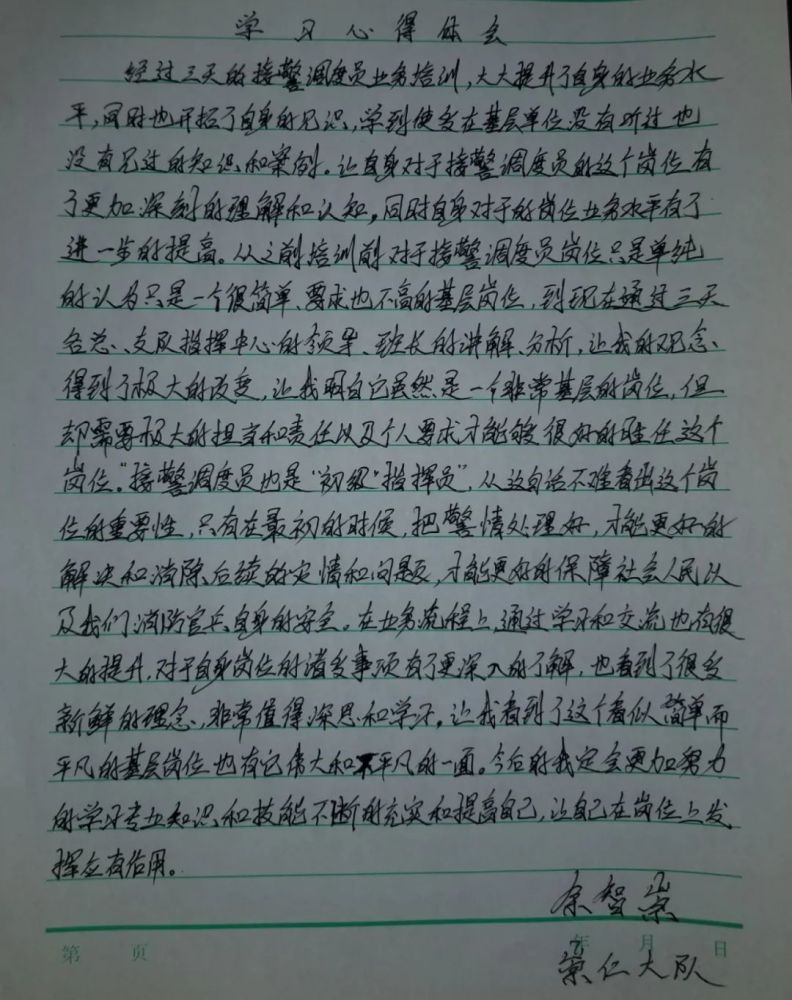 学习心得体会
经过三天的接警调度员业务培训,大大提升了自身的业务水
平,同时也开拓了自身的见识,学到使多在基层单位没有听过也
没有见过的知识和案例。让自身对于接警调度员的这个岗位有
了更加深刻的理解和认知,同时自身对于的岗位业务水平有了
进一步的提高。从之前培训前对于接警调度员岗位只是单纯
的认为只是一个很简单、要求也不高的基层岗位,到现在通过三天
各总、支队指挥中心的领导、班长的讲解、分析,让我的观念、
得到了极大的改变,让我明白它虽然是一个非常基层的岗位,但
却需要极大的担当和责任以及个人要求才能够很好的胜任这个
岗位。"接警调度员也是"初级"指挥员",从这句话不难看出这个岗
位的重要性,只有在最初的时候,把警情处理好,才能更好的
解决和消除后续的灾情和问题,才能更好的保障社会人民以
及我们消防官兵自身的安全。在业务流程上,通过学习和交流也有很
大的提升,对于自身岗位的诸多事项有了更深入的了解,也看到了很多
新鲜的理念、非常值得深思和学习。让我看到了这个看似简单而
平凡的基层岗位也有它伟大和不平凡的一面。今后的我定会更加努力
的学习专业知识和技能不断的充实和提高自己,让自己在岗位上发
挥应有作用。
余智崇
第 页 年 月 日
崇仁大队